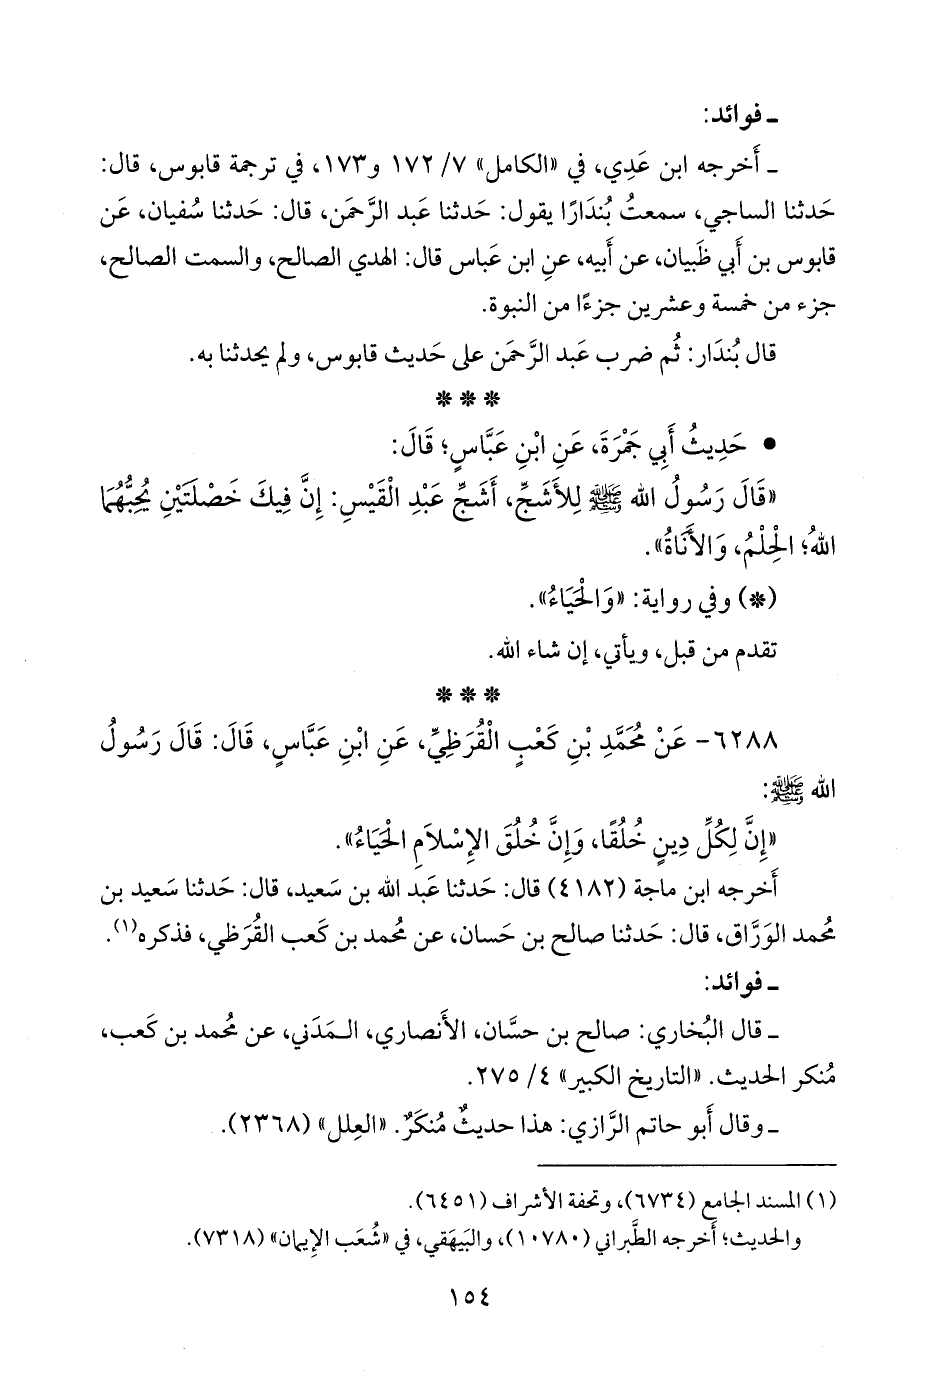 ـ فوائد:
ـ أَخرجه ابن عَدِي، في «الكامل» ٧/ ١٧٢ و١٧٣، في ترجمة قابوس، قال:
حَدثنا الساجي، سمعتُ بُندَارًا يقول: حَدثنا عَبد الرَّحمَن، قال: حَدثنا سُفيان، عَن
قابوس بن أَبي ظَبيان، عن أَبيه، عنِ ابن عَباس قال: الهدي الصالح، والسمت الصالح،
جزء من خمسة وعشرين جزءًا من النبوة.
قال بُندَار: ثُم ضرب عَبد الرَّحمَن على حَديث قابوس، ولم يحدثنا به.
* * *
● حَدِيثُ أَبِي جَمْرَةَ، عَنِ ابْنِ عَبَّاسٍ؛ قَالَ:
«قَالَ رَسُولُ الله ﷺ لِلأَشَجِّ، أَشَجِّ عَبْدِ الْقَيْسِ: إِنَّ فِيكَ خَصْلَتَيْنِ يُحِبُّهُمَا
اللهُ؛ الْحِلْمُ، وَالأَنَاةُ».
(*) وفي رواية: «وَالْحَيَاءُ».
تقدم من قبل، ويأتي، إن شاء الله.
* * *
٦٢٨٨- عَنْ مُحَمَّدِ بْنِ كَعْبٍ الْقُرَظِيِّ، عَنِ ابْنِ عَبَّاسٍ، قَالَ: قَالَ رَسُولُ
الله ﷺ:
«إِنَّ لِكُلِّ دِينٍ خُلُقًا، وَإِنَّ خُلُقَ الإِسْلَامِ الْحَيَاءُ».
أَخرجه ابن ماجة (٤١٨٢) قال: حَدثنا عَبد الله بن سَعيد، قال: حَدثنا سَعيد بن
مُحمد الوَرَّاق، قال: حَدثنا صالح بن حَسان، عن مُحمد بن كَعب القُرَظي، فذكره(١).
ـ فوائد:
ـ قال البُخاري: صالح بن حسَّان، الأَنصاري، المَدَني، عن مُحمد بن كَعب،
مُنكر الحديث. «التاريخ الكبير» ٤/ ٢٧٥.
ـ وقال أَبو حاتم الرَّازي: هذا حديثٌ مُنكَرٌ. «العِلل» (٢٣٦٨).
(١) المسند الجامع (٦٧٣٤)، وتحفة الأشراف (٦٤٥١).
والحديث؛ أَخرجه الطَّبراني (١٠٧٨٠)، والبَيهَقي، في «شُعَب الإِيمان» (٧٣١٨).
١٥٤